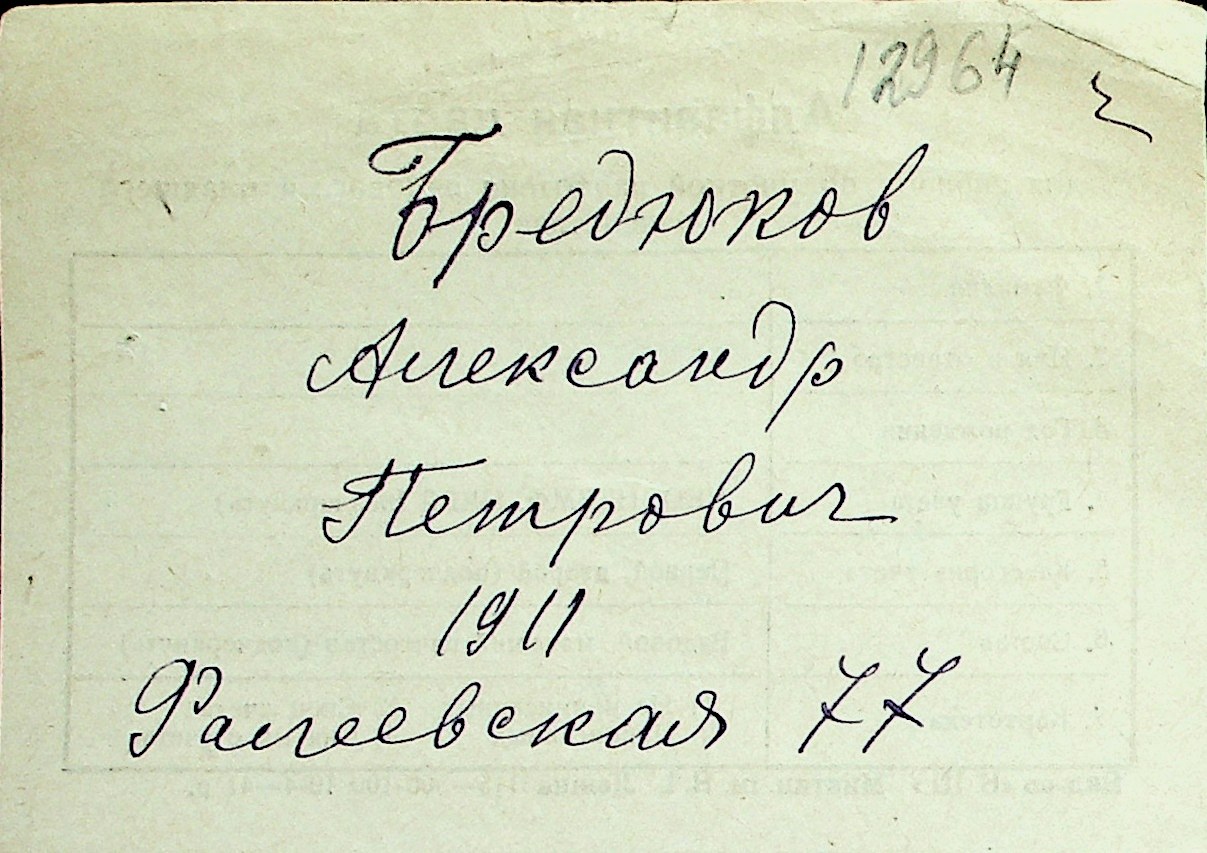 12964
Бредюков
Александр
Петрович
1911
Фалеевская 77